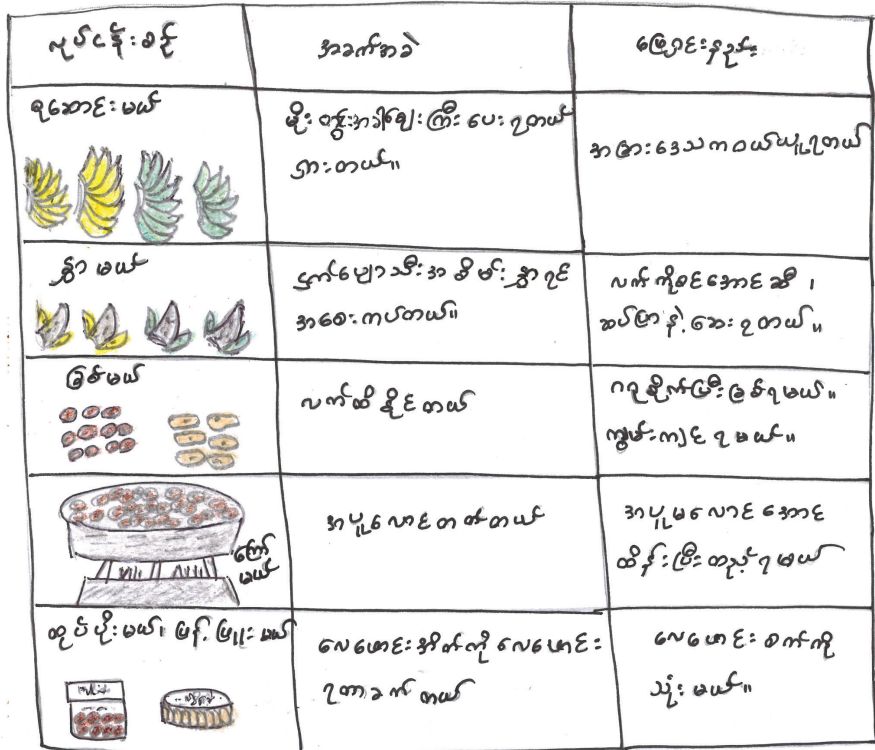 လုပ်ငန်းစဉ်
အခက်အခဲ
ဖြေရှင်းနည်း
စုဆောင်းမယ်
မိုးတွင်းအခါဈေးကြီးပေးရတယ်
ရှားတယ်။
အခြားဒေသကဝယ်ယူရတယ်
နွှာမယ်
ငှက်ပျောသီးအစိမ်းနွှာရင်
အစေးကပ်တယ်။
လက်ကိုစင်အောင်ဆီ၊
ဆပ်ပြာနဲ့ဆေးရတယ်။
ခြစ်မယ်
လက်ထိခိုင်တယ်
ဂရုစိုက်ပြီးခြစ်ရမယ်။
ကျွမ်းကျင်ရမယ်။
ကြော်
မယ်
အပူလောင်တတ်တယ်
အပူမလောင်အောင်
ထိန်းပြီးတည့်ရမယ်
ထုပ်ပိုးမယ်၊ ဖြန့်ဖြူးမယ်
လေဖောင်းအိတ်ကိုလေဖောင်း
ရတာခက်တယ်
လေဖောင်းစက်ကို
သုံးမယ်။